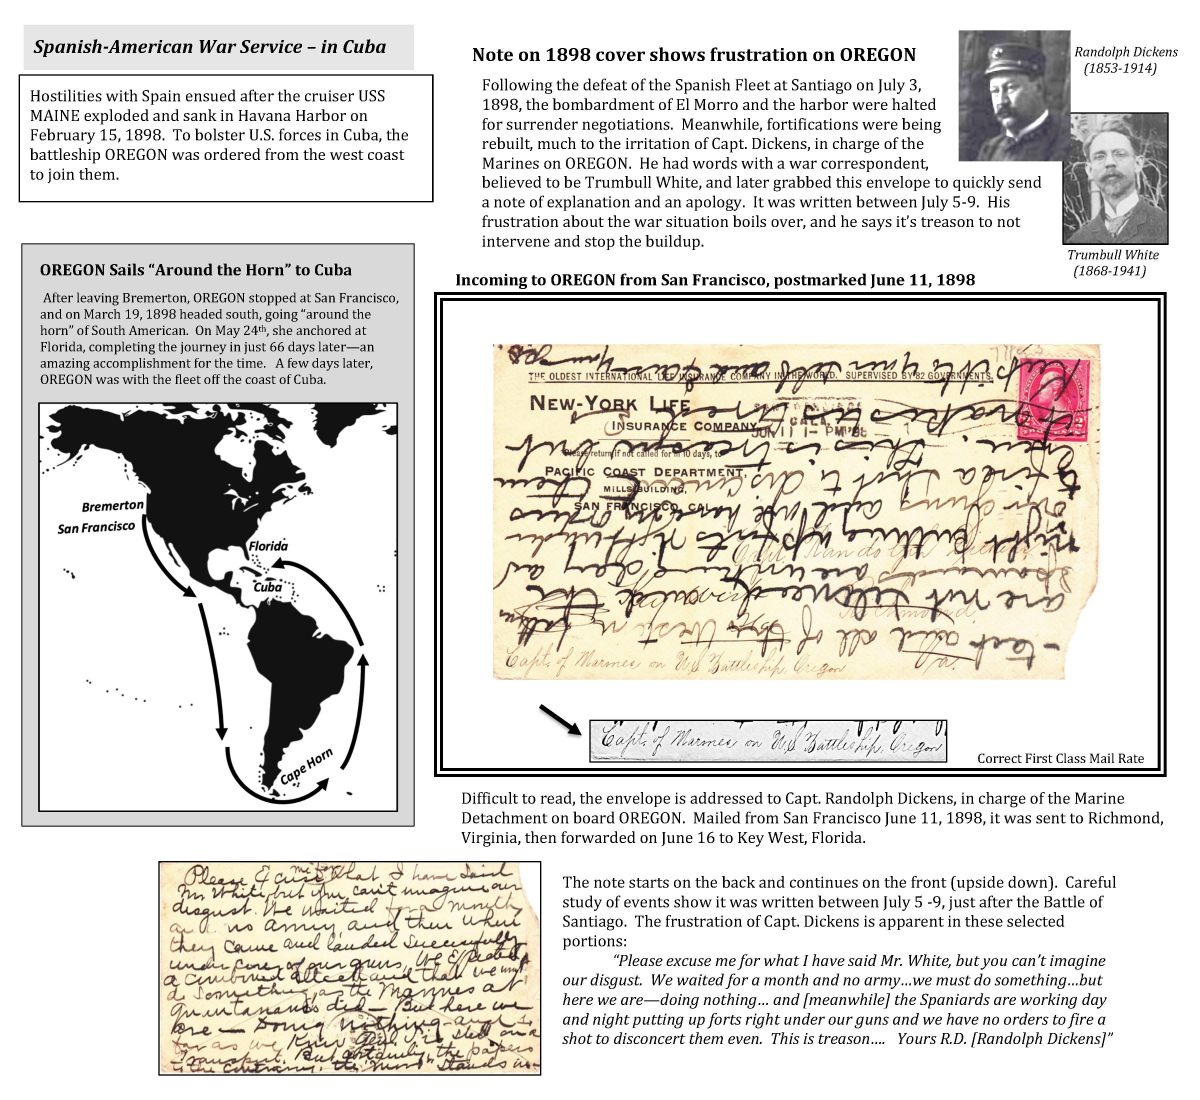 Spanish-American War Service – in Cuba
Hostilities with Spain ensued after the cruiser USS
MAINE exploded and sank in Havana Harbor on
February 15, 1898. To bolster U.S. forces in Cuba, the
battleship OREGON was ordered from the west coast
to join them.
OREGON Sails “Around the Horn” to Cuba
After leaving Bremerton, OREGON stopped at San Francisco,
and on March 19, 1898 headed south, going “around the
horn” of South American. On May 24th, she anchored at
Florida, completing the journey in just 66 days later—an
amazing accomplishment for the time. A few days later,
OREGON was with the fleet off the coast of Cuba.
Bremerton
San Francisco
Florida
Cuba
Cape Horn
Note on 1898 cover shows frustration on OREGON
Following the defeat of the Spanish Fleet at Santiago on July 3,
1898, the bombardment of El Morro and the harbor were halted
for surrender negotiations. Meanwhile, fortifications were being
rebuilt, much to the irritation of Capt. Dickens, in charge of the
Marines on OREGON. He had words with a war correspondent,
believed to be Trumbull White, and later grabbed this envelope to quickly send
a note of explanation and an apology. It was written between July 5-9. His
frustration about the war situation boils over, and he says it’s treason to not
intervene and stop the buildup.
Randolph Dickens
(1853-1914)
Trumbull White
(1868-1941)
Incoming to OREGON from San Francisco, postmarked June 11, 1898
THE OLDEST INTERNATIONAL LIFE INSURANCE COMPANY IN THE WORLD. SUPERVISED BY 82 GOVERNMENTS.
NEW-YORK LIFE
INSURANCE COMPANY,
Please return if not called for in 10 days, to
PACIFIC COAST DEPARTMENT,
MILLS BUILDING,
SAN FRANCISCO, CAL.
JUN 11 1- PM '98
Capt. Randolph Dickens
Richmond.
Va.
Capt. of Marines on U.S. Battleship, Oregon
- tack and all of the West in
are not silenced and the
Spaniards are working day and
night putting up forts right under
our guns and we have no orders
to fire a shot to disconcert them
even. This is treason but
Capt. of Marines on U.S. Battleship, Oregon
Correct First Class Mail Rate
Difficult to read, the envelope is addressed to Capt. Randolph Dickens, in charge of the Marine
Detachment on board OREGON. Mailed from San Francisco June 11, 1898, it was sent to Richmond,
Virginia, then forwarded on June 16 to Key West, Florida.
Please Excuse me for what I have said
Mr White, but you can't imagine our
disgust. We waited for a month
and no army, and then when
they came and landed successfully
under fire of our guns, We Expected
a combined attack and that we must
do something, as the Marines at
Guantanamo did — But here we
are — Doing nothing - and so
far as we know Gen'l is still on a
Transport. But the papers
to the contrary, the Morro stands un-
The note starts on the back and continues on the front (upside down). Careful
study of events show it was written between July 5 -9, just after the Battle of
Santiago. The frustration of Capt. Dickens is apparent in these selected
portions:
“Please excuse me for what I have said Mr. White, but you can’t imagine
our disgust. We waited for a month and no army…we must do something…but
here we are—doing nothing… and [meanwhile] the Spaniards are working day
and night putting up forts right under our guns and we have no orders to fire a
shot to disconcert them even. This is treason…. Yours R.D. [Randolph Dickens]”